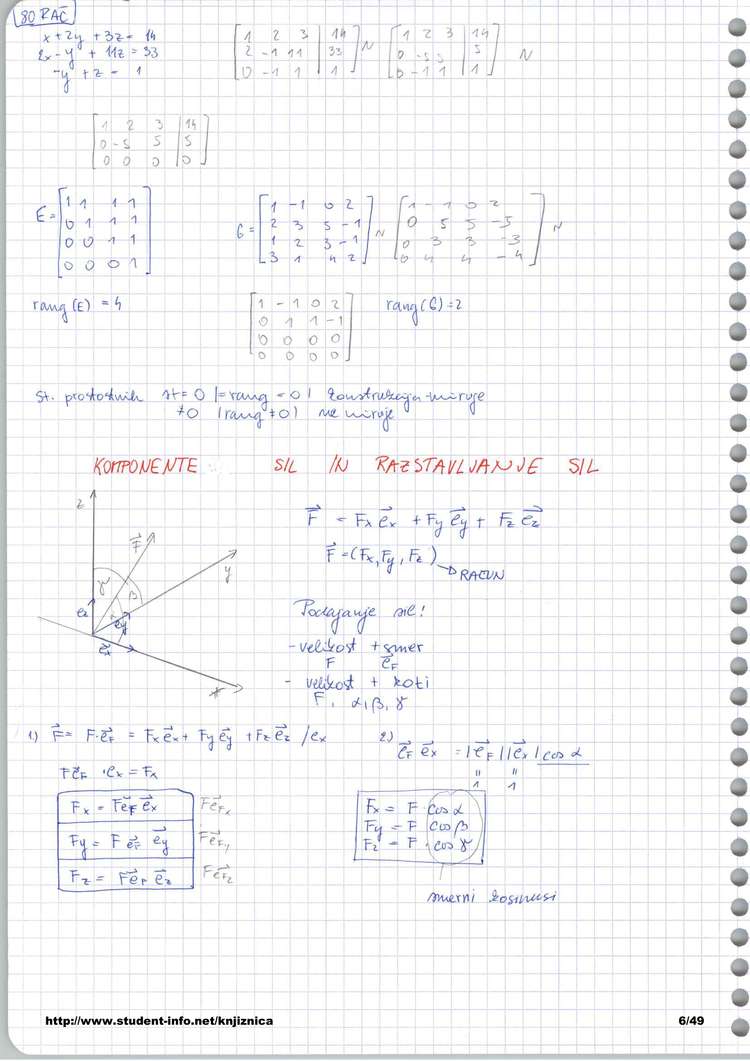 80 RAČ
x + 2y + 3z = 14
2x - y + 11z = 33
-y + z = 1
[1 2 3 | 14
2 -1 11 | 33
0 -1 1 | 1] ~ [1 2 3 | 14
0 -5 5 | 5
0 -1 1 | 1] ~
[1 2 3 | 14
0 -5 5 | 5
0 0 0 | 0]
E = [1 1 1 1
0 1 1 1
0 0 1 1
0 0 0 1]
G = [1 -1 0 2
2 3 5 -1
1 2 3 -1
3 1 4 2] ~ [1 -1 0 2
0 5 5 -5
0 3 3 -3
0 4 4 -4] ~
rang (E) = 4
[1 -1 0 2
0 1 1 -1
0 0 0 0
0 0 0 0]
rang (G) = 2
št. prostostnih = 0 (= rang = 0) konstrukcija miruje
≠0 (rang ≠ 0) ne miruje
KOMPONENTE SIL IN RAZSTAVLJANJE SIL
z
F⃗
y
γ
β
ez
ey
e⃗x
x
F⃗ = Fx e⃗x + Fy e⃗y + Fz e⃗z
F⃗ = (Fx, Fy, Fz)
→ RAČUN
Podajanje sil!
- velikost + smer
F e⃗F
- velikost + koti
F, α, β, γ
1) F⃗ = F·e⃗F = Fx e⃗x + Fy e⃗y + Fz e⃗z /ex
F e⃗F · ex = Fx
Fx = F e⃗F e⃗x F e⃗Fx
Fy = F e⃗F e⃗y F e⃗Fy
Fz = F e⃗F e⃗z F e⃗Fz
2) e⃗F e⃗x = |e⃗F| |e⃗x| cos α
" "
1 1
Fx = F · cos α
Fy = F cos β
Fz = F · cos γ
smerni kosinusi
http://www.student-info.net/knjiznica
6/49